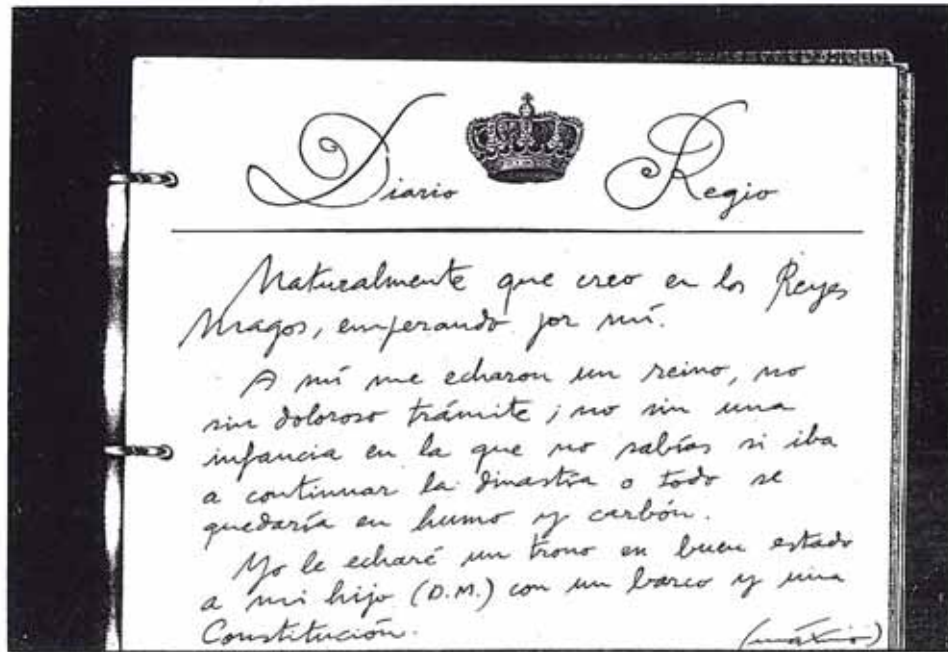 Diario Regio
Naturalmente que creo en los Reyes
Magos, empezando por mí.
A mí me echaron un reino, no
sin doloroso trámite; no sin una
infancia en la que no sabías si iba
a continuar la dinastía o todo se
quedaría en humo y carbón.
Yo le echaré un trono en buen estado
a mi hijo (D.M.) con un barco y una
Constitución.
(máximo)